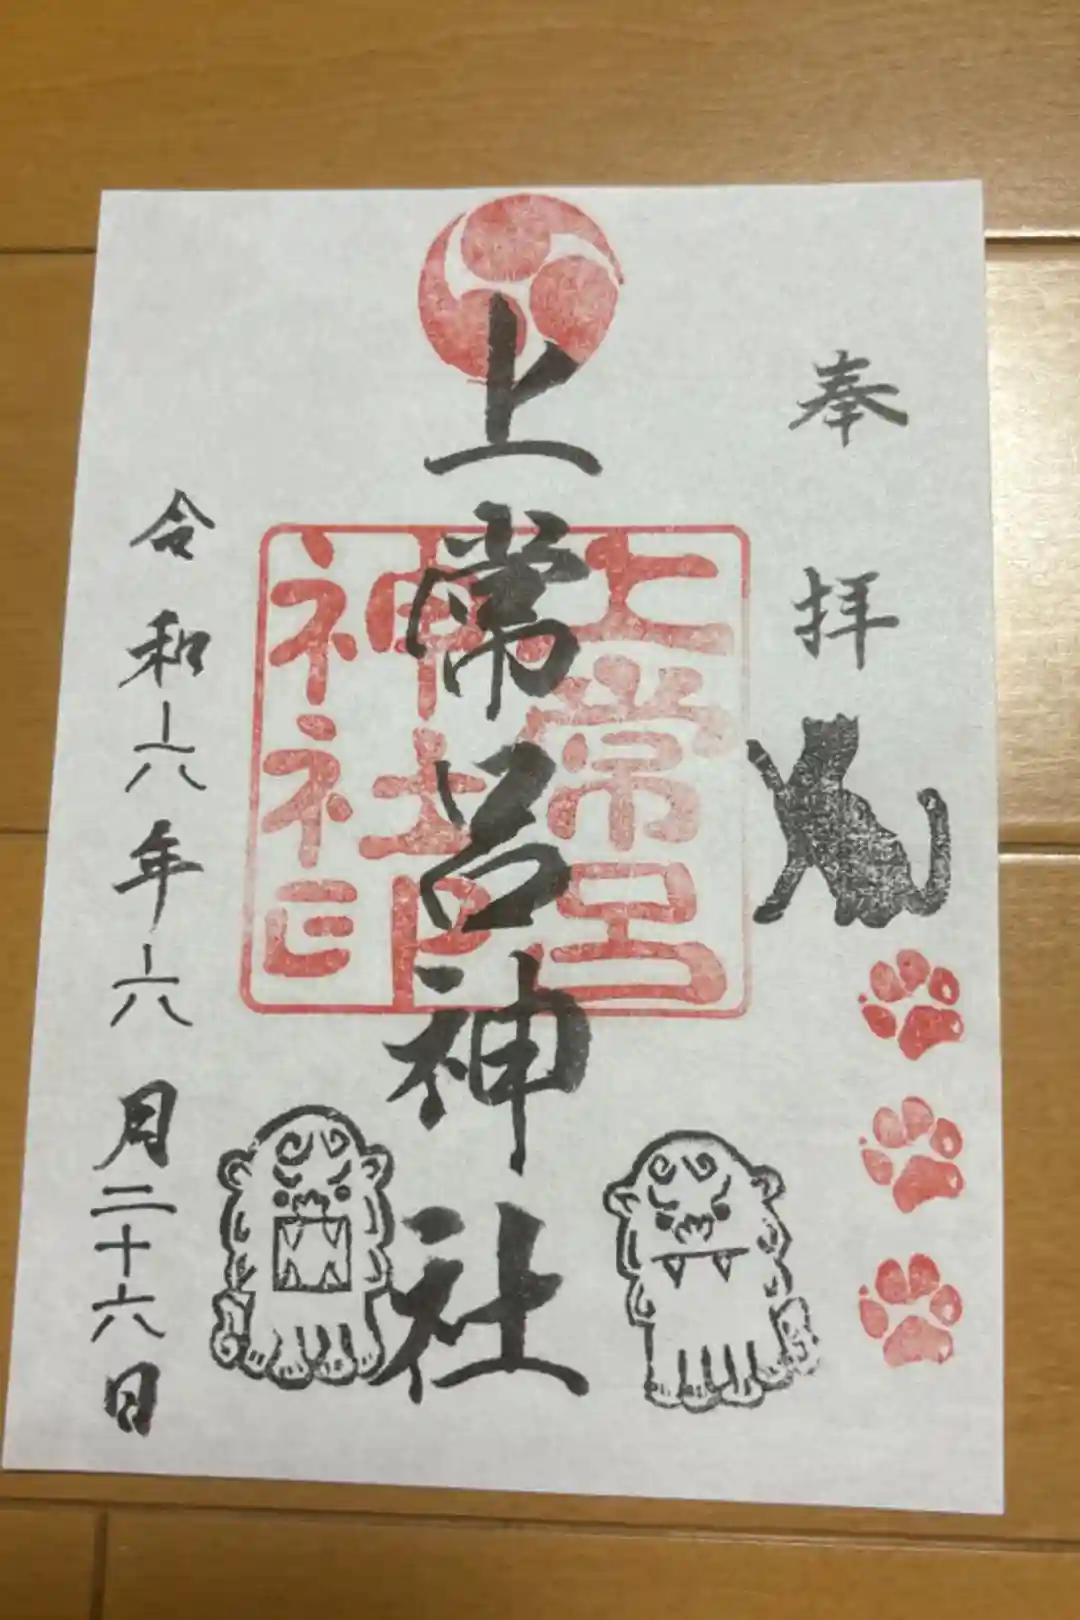 奉拝
上常呂神社
上常呂
神社印
令和六年六月二十六日